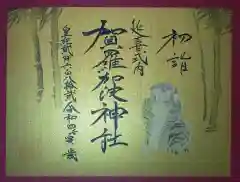 初詣
延喜式内
賀羅加波神社
皇紀弐千六百八拾弐令和四壬寅歳